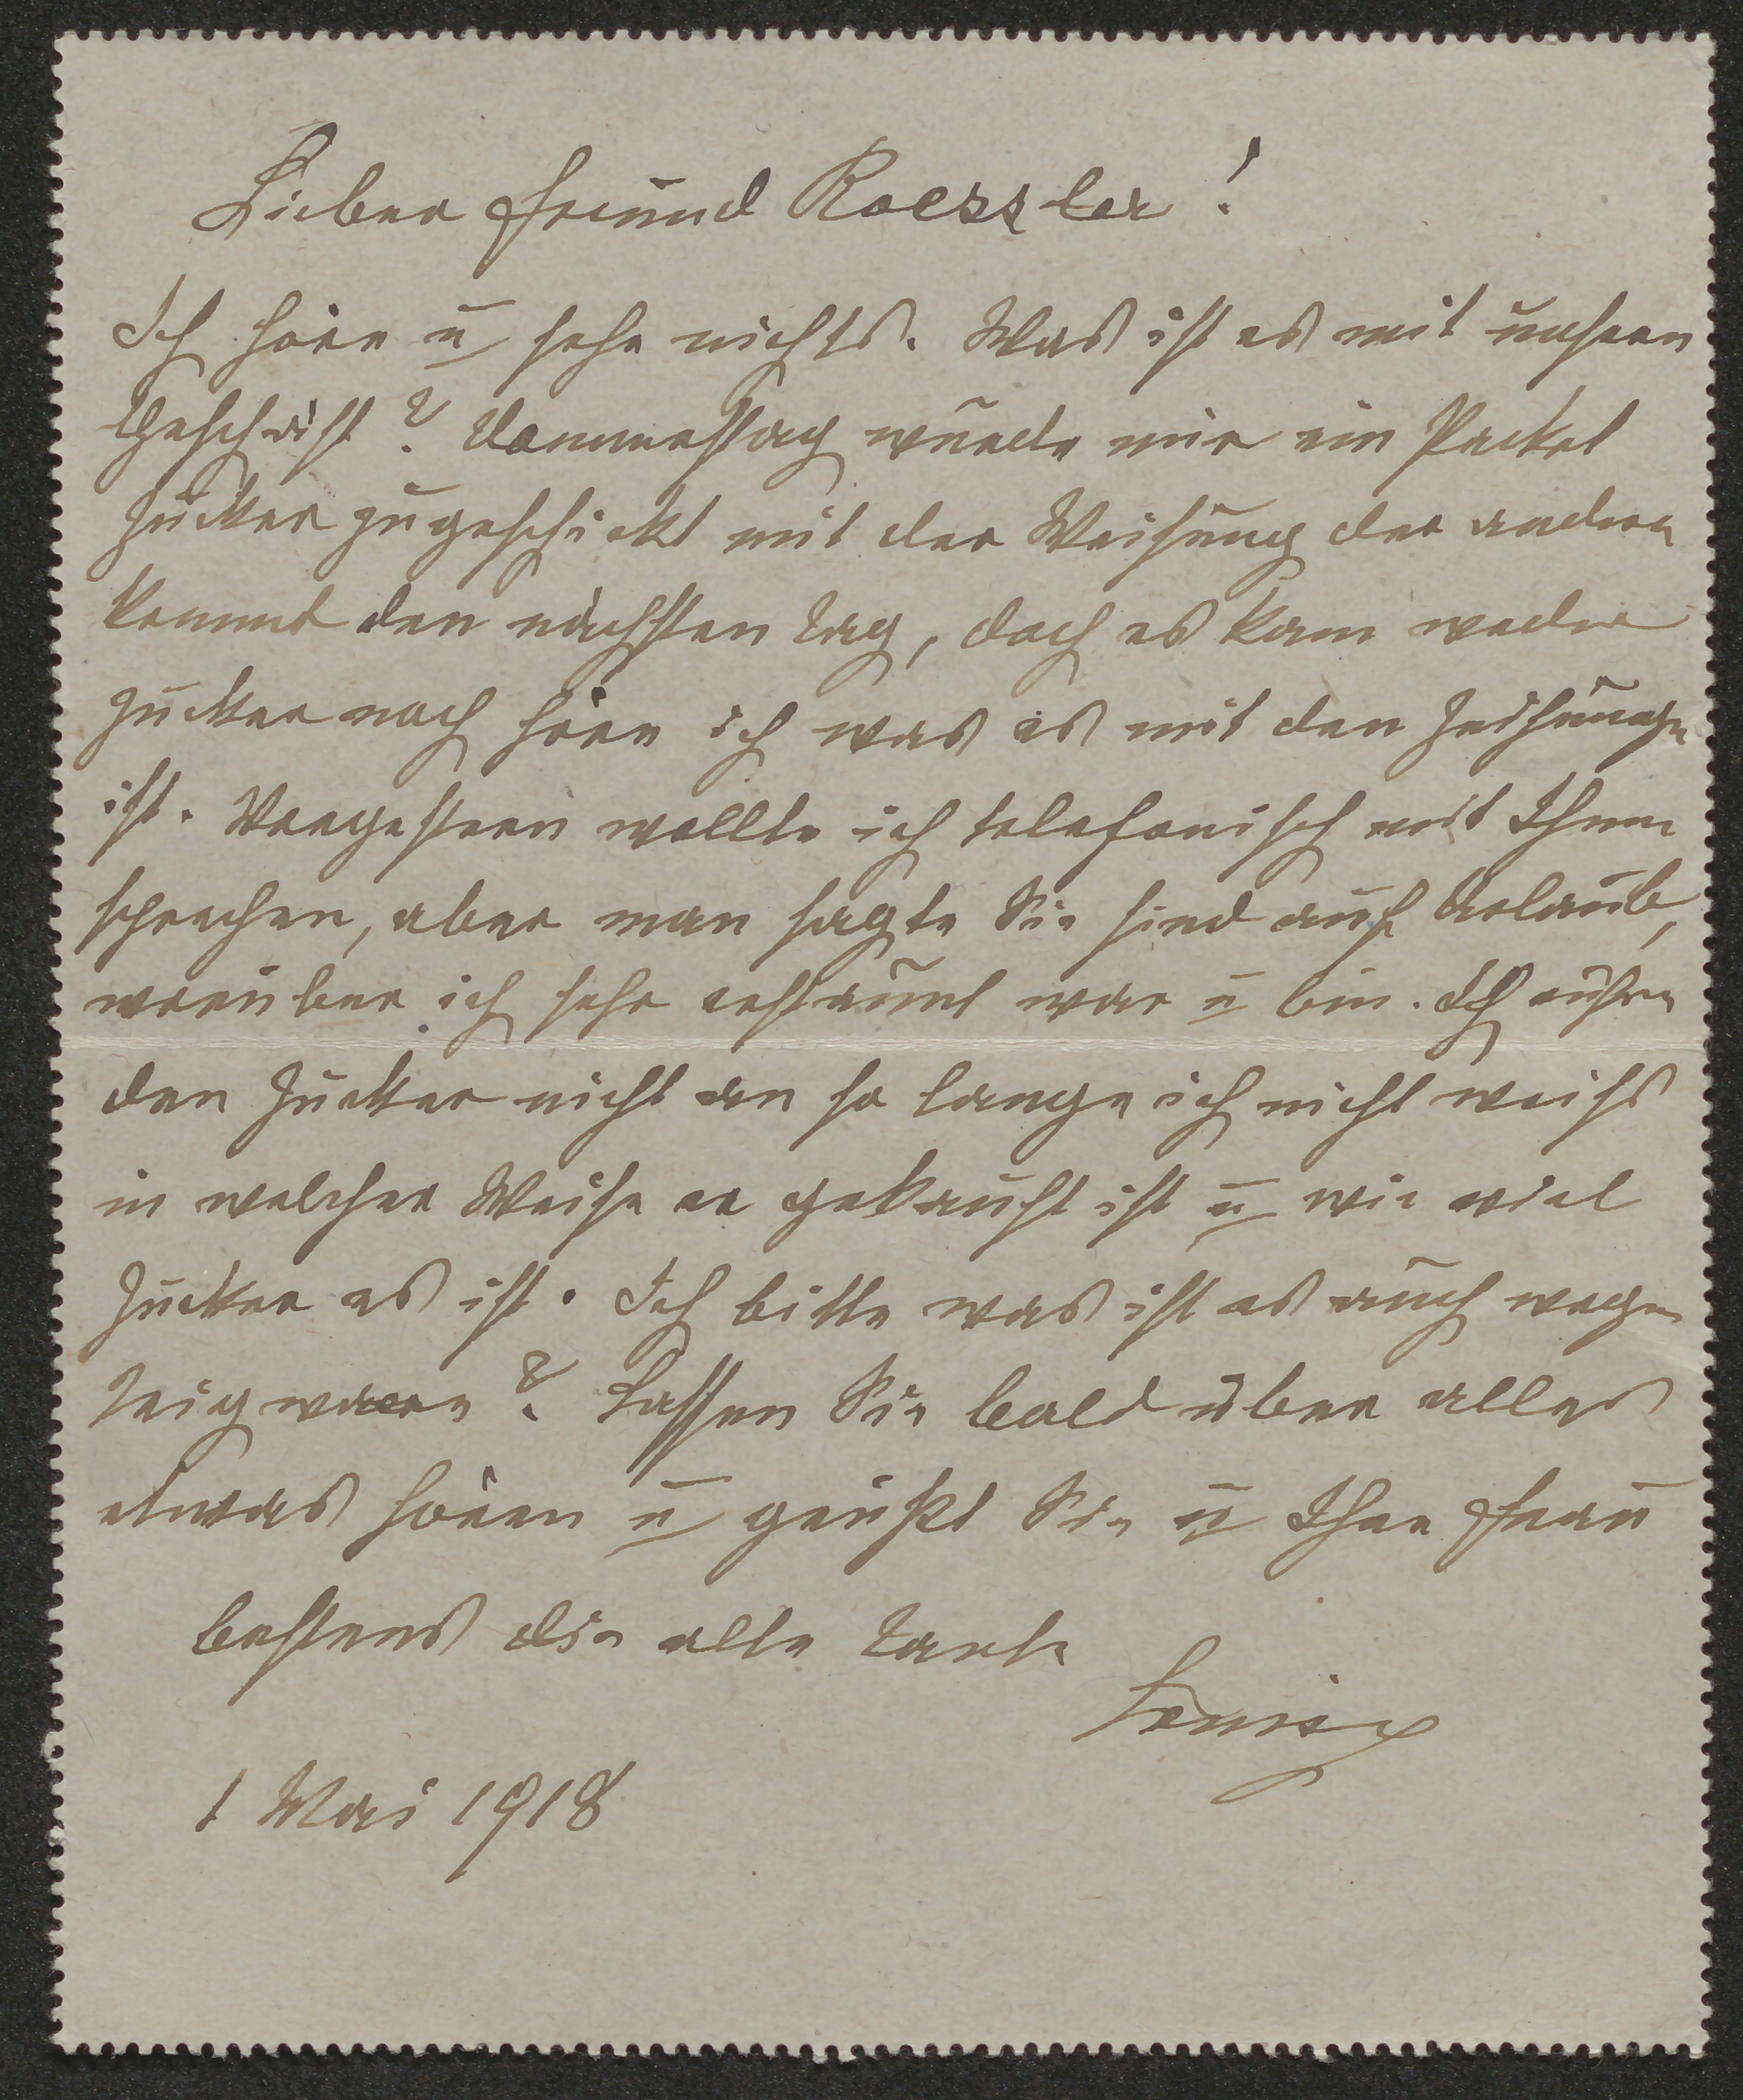 Lieber Freund Roessler!
Ich höre u sehe nichts. Was ist es mit unsern
Geschäft? Donnerstag wurde mir ein Packet
Zucker zugeschickt mit der Weisung der andere
kommt den nächsten Tag, doch es kam weder
Zucker noch höre ich was es mit den Zeichnungen
ist. Vorgestern wollte ich telefonisch mit Ihnen
sprechen, aber man sagte Sie sind auf Urlaub,
worüber ich sehr erstaunt war u bin. Ich rühre
den Zucker nicht an so lange ich nicht weiß
in welcher Weise er gekauft ist u wie viel
Zucker es ist. Ich bitte was ist es auch wegen
Teigware? Lassen Sie bald über alles
etwas hören u grüßt Sie u Ihre Frau
bestens die alte Tante
1 Mai 1918